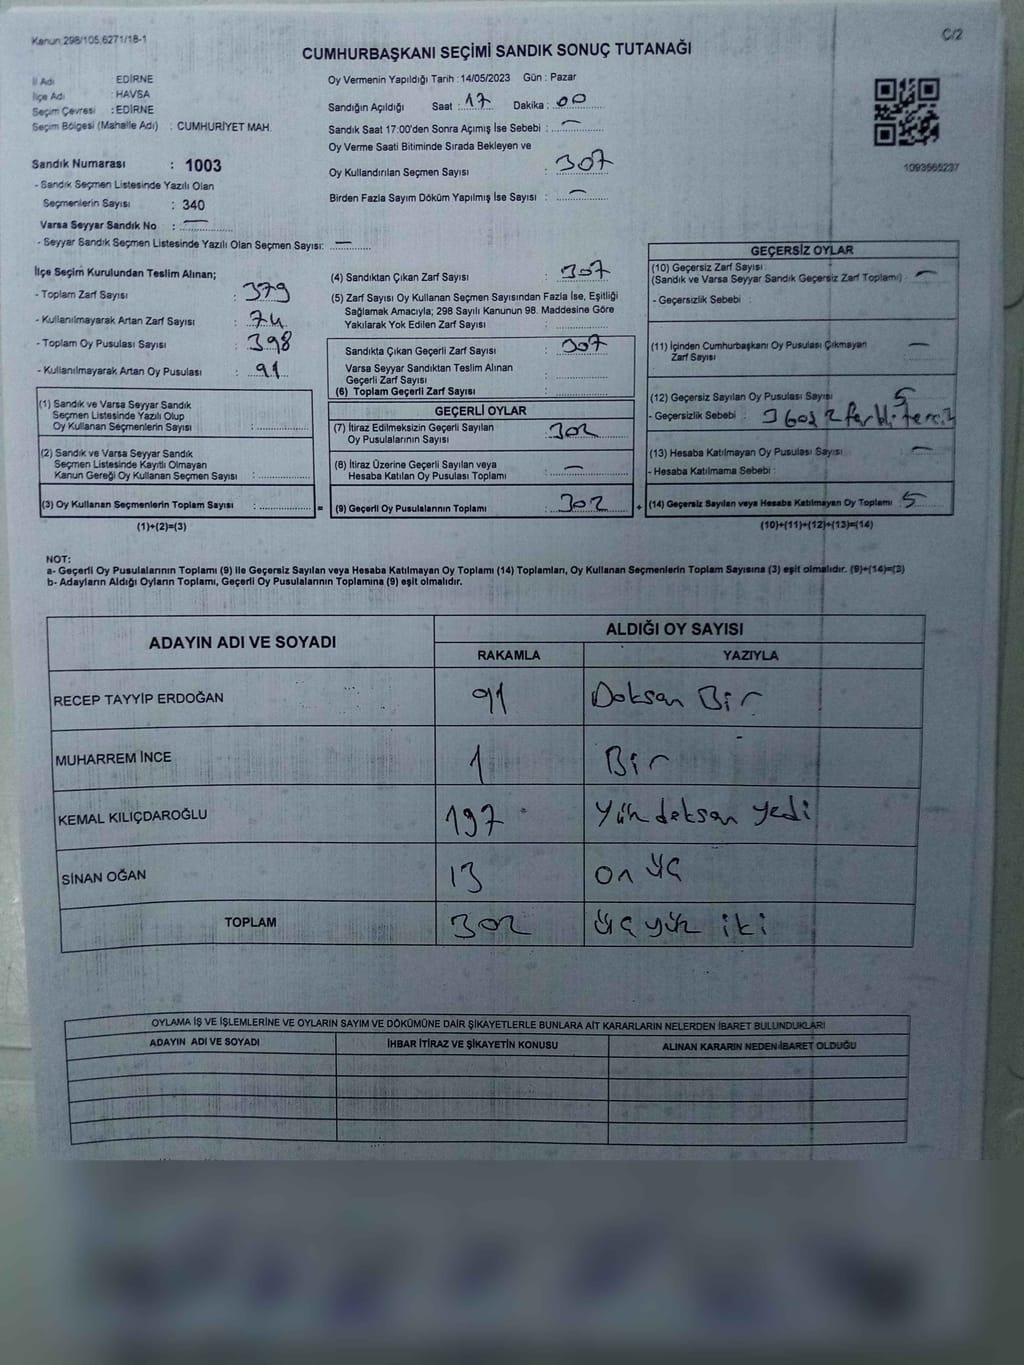 Kanun 298/105,6271/18-1
C/2
CUMHURBAŞKANI SEÇİMİ SANDIK SONUÇ TUTANAĞI
İl Adı : EDİRNE
İlçe Adı : HAVSA
Seçim Çevresi : EDİRNE
Seçim Bölgesi (Mahalle Adı) : CUMHURİYET MAH.
Sandık Numarası : 1003
- Sandık Seçmen Listesinde Yazılı Olan
Seçmenlerin Sayısı : 340
Varsa Seyyar Sandık No : —
- Seyyar Sandık Seçmen Listesinde Yazılı Olan Seçmen Sayısı: —
Oy Vermenin Yapıldığı Tarih : 14/05/2023 Gün : Pazar
Sandığın Açıldığı Saat : 17 Dakika : 00
Sandık Saat 17:00'den Sonra Açımış İse Sebebi : —
Oy Verme Saati Bitiminde Sırada Bekleyen ve
Oy Kullandırılan Seçmen Sayısı : 307
Birden Fazla Sayım Döküm Yapılmış İse Sayısı : —
1093565237
İlçe Seçim Kurulundan Teslim Alınan;
- Toplam Zarf Sayısı : 379
- Kullanılmayarak Artan Zarf Sayısı : 74
- Toplam Oy Pusulası Sayısı : 398
- Kullanılmayarak Artan Oy Pusulası : 91
(1) Sandık ve Varsa Seyyar Sandık
Seçmen Listesinde Yazılı Olup
Oy Kullanan Seçmenlerin Sayısı :
(2) Sandık ve Varsa Seyyar Sandık
Seçmen Listesinde Kayıtlı Olmayan
Kanun Gereği Oy Kullanan Seçmen Sayısı :
(3) Oy Kullanan Seçmenlerin Toplam Sayısı : =
(1)+(2)=(3)
(4) Sandıktan Çıkan Zarf Sayısı : 307
(5) Zarf Sayısı Oy Kullanan Seçmen Sayısından Fazla İse, Eşitliği
Sağlamak Amacıyla; 298 Sayılı Kanunun 98. Maddesine Göre
Yakılarak Yok Edilen Zarf Sayısı :
Sandıkta Çıkan Geçerli Zarf Sayısı : 307
Varsa Seyyar Sandıktan Teslim Alınan
Geçerli Zarf Sayısı :
(6) Toplam Geçerli Zarf Sayısı :
GEÇERLİ OYLAR
(7) İtiraz Edilmeksizin Geçerli Sayılan
Oy Pusulalarının Sayısı : 302
(8) İtiraz Üzerine Geçerli Sayılan veya
Hesaba Katılan Oy Pusulası Toplamı : —
(9) Geçerli Oy Pusulalarının Toplamı : 302 +
GEÇERSİZ OYLAR
(10) Geçersiz Zarf Sayısı
(Sandık ve Varsa Seyyar Sandık Geçersiz Zarf Toplamı) : —
- Geçersizlik Sebebi :
(11) İçinden Cumhurbaşkanı Oy Pusulası Çıkmayan —
Zarf Sayısı :
(12) Geçersiz Sayılan Oy Pusulası Sayısı 5
- Geçersizlik Sebebi : 2 farklı tercih
(13) Hesaba Katılmayan Oy Pusulası Sayısı : —
- Hesaba Katılmama Sebebi :
(14) Geçersiz Sayılan veya Hesaba Katılmayan Oy Toplamı : 5
(10)+(11)+(12)+(13)=(14)
NOT:
a- Geçerli Oy Pusulalarının Toplamı (9) ile Geçersiz Sayılan veya Hesaba Katılmayan Oy Toplamı (14) Toplamları, Oy Kullanan Seçmenlerin Toplam Sayısına (3) eşit olmalıdır. (9)+(14)=(3)
b- Adayların Aldığı Oyların Toplamı, Geçerli Oy Pusulalarının Toplamına (9) eşit olmalıdır.
ADAYIN ADI VE SOYADI ALDIĞI OY SAYISI
RAKAMLA YAZIYLA
RECEP TAYYİP ERDOĞAN 91 Doksan Bir
MUHARREM İNCE 1 Bir
KEMAL KILIÇDAROĞLU 197 Yüz doksan yedi
SİNAN OĞAN 13 on üç
TOPLAM 302 üç yüz iki
OYLAMA İŞ VE İŞLEMLERİNE VE OYLARIN SAYIM VE DÖKÜMÜNE DAİR ŞİKAYETLERLE BUNLARA AİT KARARLARIN NELERDEN İBARET BULUNDUKLARI
ADAYIN ADI VE SOYADI İHBAR İTİRAZ VE ŞİKAYETİN KONUSU ALINAN KARARIN NEDEN İBARET OLDUĞU